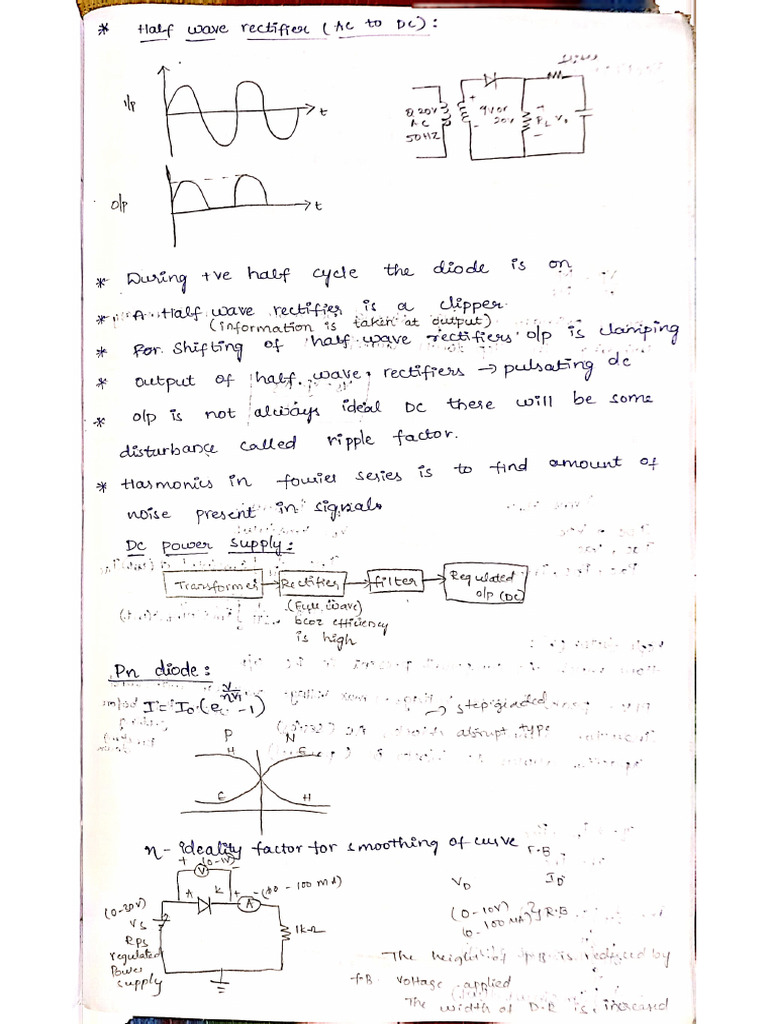 * Half wave rectifier (AC to DC):
i/p
t
AC
50HZ
+
-
20V
RL
Vo
o/p
t
* During +ve half cycle the diode is on
* A Half wave rectifier is a clipper.
(information is taken at output)
* For shifting of half wave rectifiers o/p is clamping
* output of half wave rectifiers → pulsating dc
* o/p is not always ideal DC there will be some
disturbance called ripple factor.
* Harmonics in fourier series is to find amount of
noise present in signal.
DC power supply:
Transformer → Rectifier → filter → Regulated
o/p (DC)
(Full wave)
bcoz efficiency
is high
Pn diode:
I = I0 (e -1)
→ step graded
abrupt type
P N
H E
E H
n- ideality factor for smoothing of curve
F.B
+ (0-1V) -
V
A K + A -
VD ID
(0-10V)
R.B
VS
RPS
regulated
Power
supply
1kΩ
The height of P.B is reduced by
f.B voltage applied
The width of D.R is increased